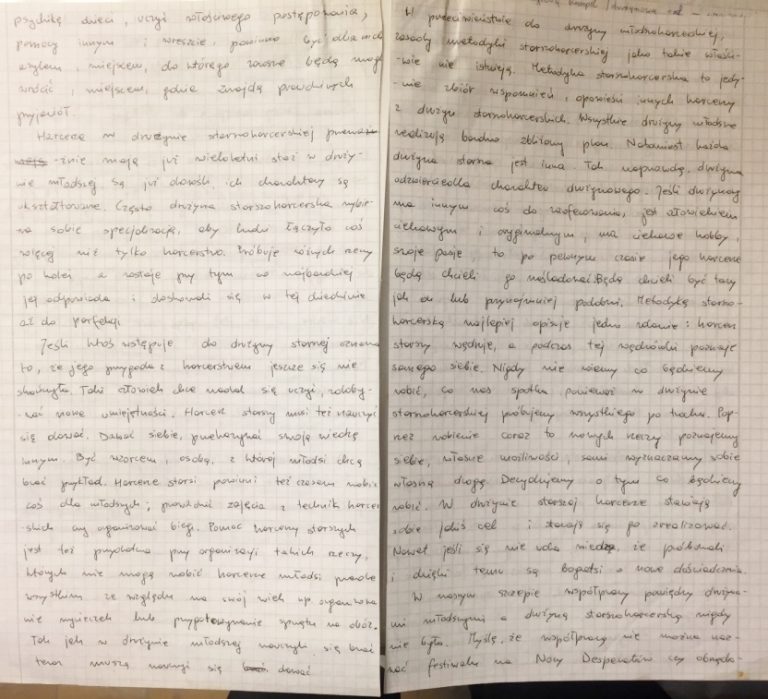 psychikę dzieci, uczyć właściwego postępowania,
pomocy innym i wreszcie, powinno być dla nich
azylem, miejscem, do którego zawsze będą mogli
wrócić, miejscem, gdzie znajdą prawdziwych
przyjaciół.
Harcerze w drużynie starszoharcerskiej
-znie mają już wieloletni staż w druży-
nie młodszej są już dorośli, ich charaktery są
ukształtowane. Często drużyna starszoharcerska wybie-
ra sobie specjalizację, aby ludzi łączyło coś
więcej niż tylko harcerstwo. Próbuje różnych rzeczy
po kolei a zostaje przy tym co najbardziej
jej odpowiada i doskonali się w tej dziedzinie
aż do perfekcji.
Jeśli ktoś wstępuje do drużyny starszej oznacza
to, że jego przygoda z harcerstwem jeszcze się nie
skończyła. Taki człowiek chce nadal się uczyć, zdoby-
wać nowe umiejętności. Harcerz starszy musi też nauczyć
się dawać. Dawać siebie, przekazywać swoją wiedzę
innym. Być wzorcem, osobą, z której młodsi chcą
brać przykład. Harcerze starsi powinni też czasem robić
coś dla młodszych; prowadzić zajęcia z technik harcer-
skich czy organizować bieg. Pomoc harcerzy starszych
jest też przydatna przy organizacji takich rzeczy,
których nie mogą robić harcerze młodsi przede
wszystkim ze względu na swój wiek np organizowa-
nie wycieczek lub przygotowywanie sprzętu na obóz.
Tak jak w drużynie młodszej nauczyli się brać
teraz muszą nauczyć się dawać
W przeciwieństwie do drużyny młodszoharcerskiej,
zasady metodyki starszoharcerskiej jako takie właści-
-wie nie istnieją. Metodyka starszoharcerska to jedy-
-nie zbiór wspomnień, opowieści innych harcerzy
z drużyn starszoharcerskich. Wszystkie drużyny młodsze
realizują bardzo zbliżony plan. Natomiast każda
drużyna starsza jest inna. Tak naprawdę, drużyna
odzwierciedla charakter drużynowego. Jeśli drużynowy
ma innym coś do zaoferowania, jest człowiekiem
ciekawym i oryginalnym, ma ciekawe hobby,
swoje pasje, to po pewnym czasie jego harcerze
będą chcieli go naśladować. Będą chcieli być tacy
jak on lub przynajmniej podobni. Metodykę starszo-
harcerską najlepiej opisuje jedno zdanie: harcerz
starszy wędruje, a podczas tej wędrówki poznaje
samego siebie. Nigdy nie wiemy co będziemy
robić, co nas spotka ponieważ w drużynie
starszoharcerskiej próbujemy wszystkiego po trochu. Pop-
rzez robienie coraz to nowych rzeczy poznajemy
siebie, własne możliwości, sami wyznaczamy sobie
własną drogę. Decydujemy o tym co będziemy
robić. W drużynie starszej harcerze stawiają
sobie jakiś cel i starają się go zrealizować.
Nawet jeśli się nie uda wiedzą, że próbowali
i dzięki temu są bogatsi o nowe doświadczenia.
W naszym szczepie współpracy pomiędzy drużyna-
mi młodszymi a drużyną starszoharcerską nigdy
nie było. Myślę, że współpracą nie można naz-
wać festiwalu na Nowy Desperatów czy